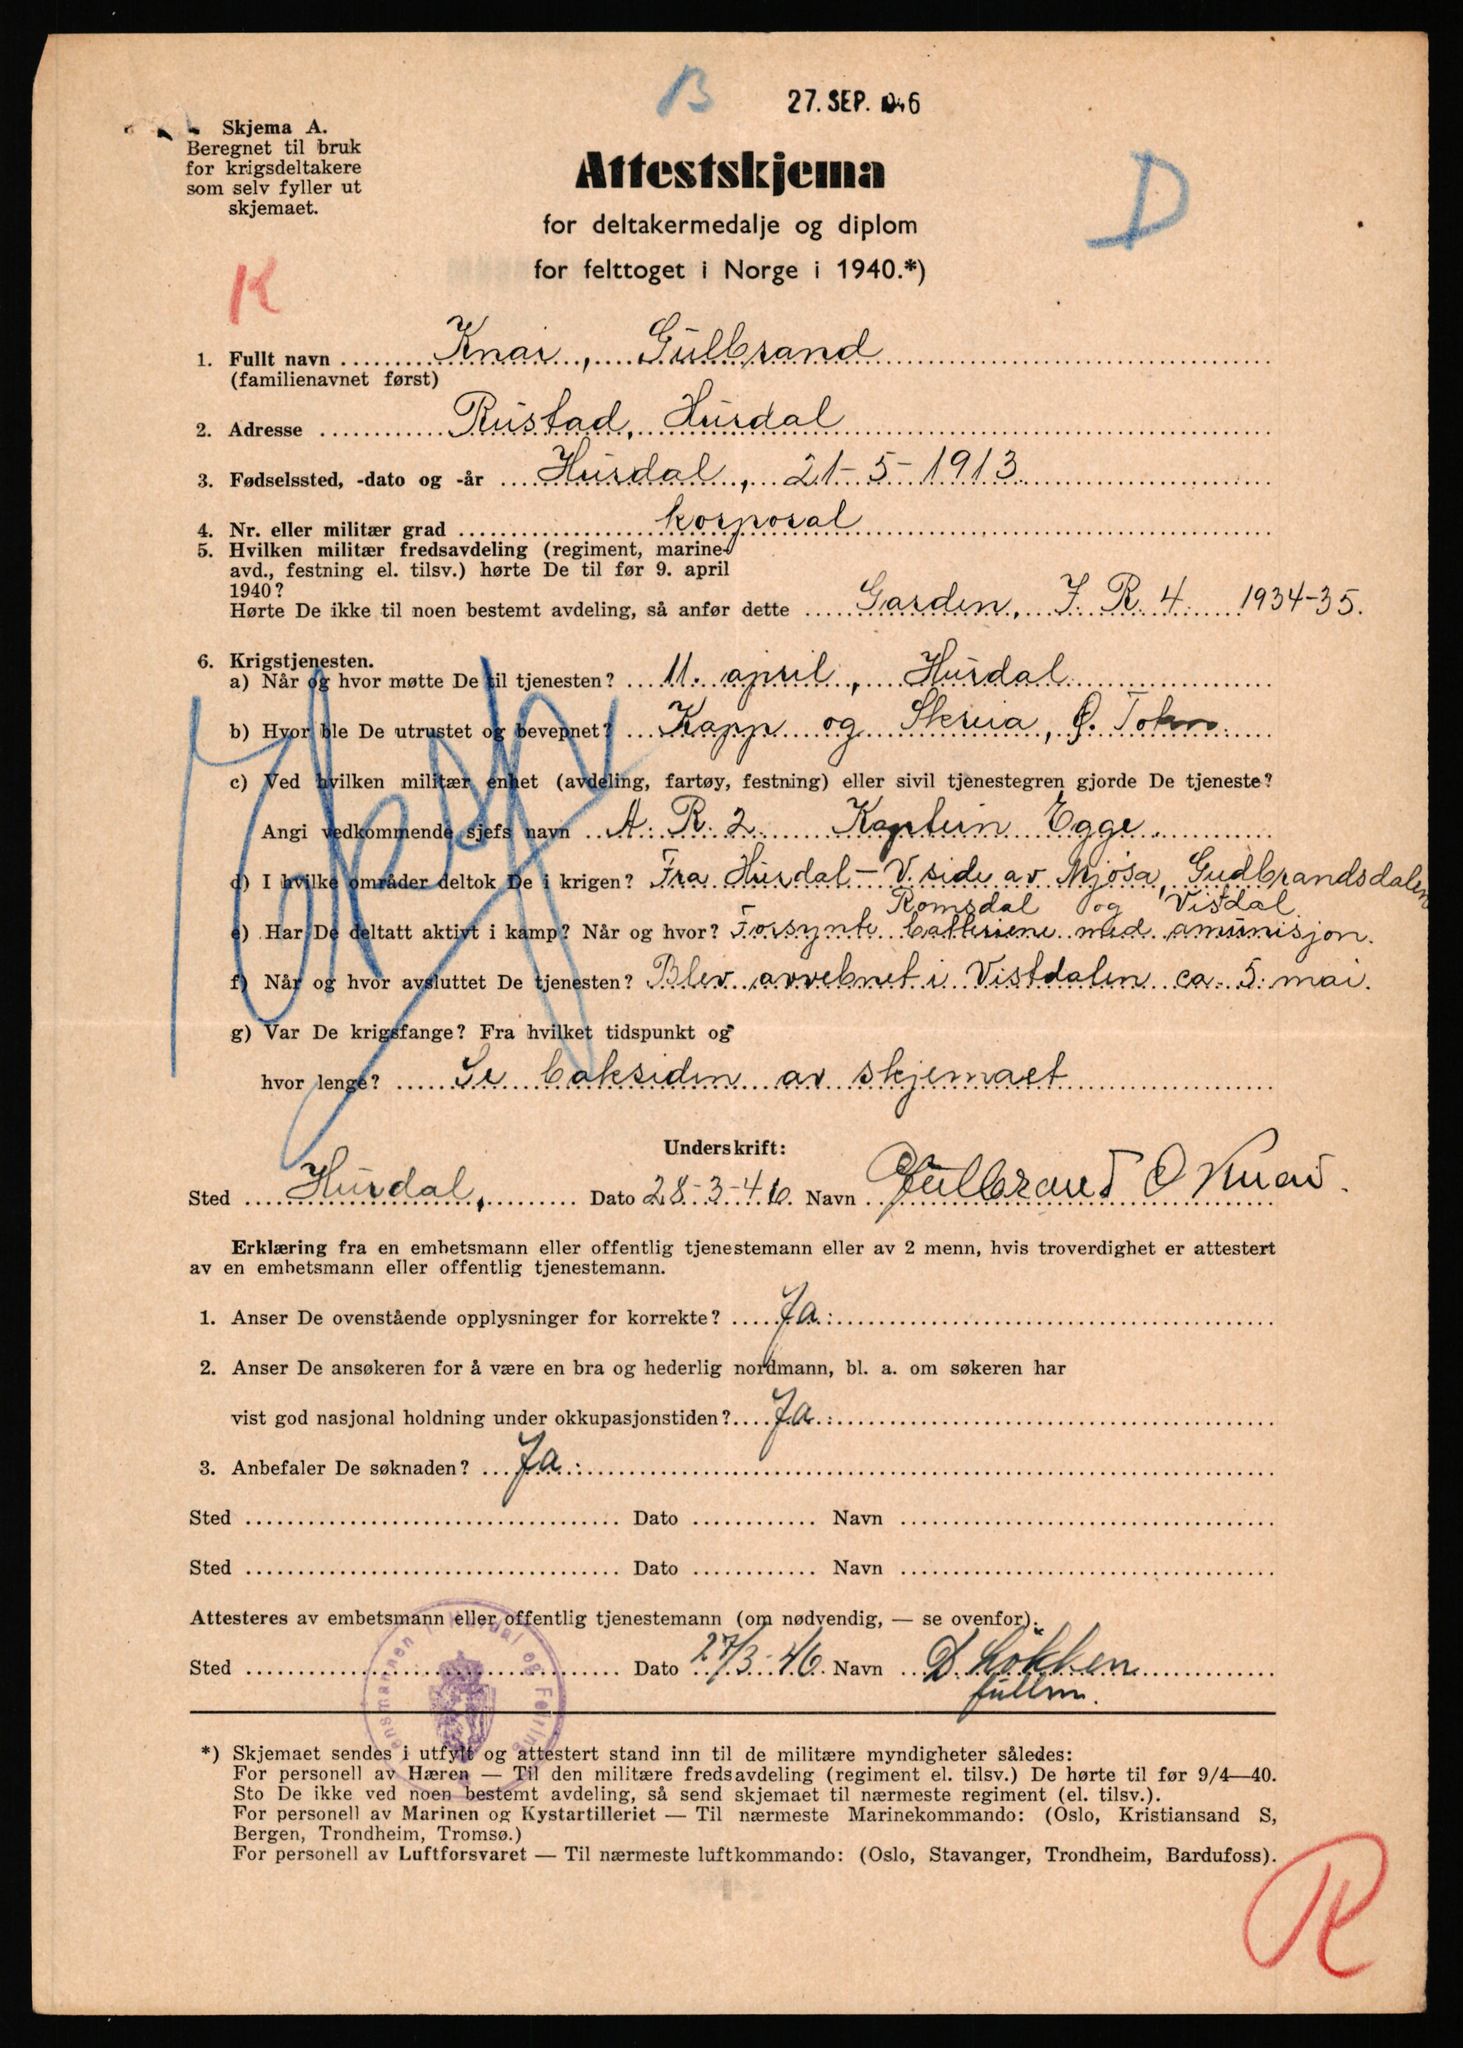 B
27. SEP. 1946
Skjema A.
Beregnet til bruk
for krigsdeltakere
som selv fyller ut
skjemaet.
Attestskjema
for deltakermedalje og diplom
for felttoget i Norge i 1940.*)
D
K
1. Fullt navn Knai, Gulbrand
(familienavnet først)
2. Adresse Rustad, Hurdal
3. Fødselssted, -dato og -år Hurdal, 21-5-1913
4. Nr. eller militær grad korporal
5. Hvilken militær fredsavdeling (regiment, marine-
avd., festning el. tilsv.) hørte De til før 9. april
1940?
Hørte De ikke til noen bestemt avdeling, så anfør dette Garden, I R. 4 1934-35.
6. Krigstjenesten.
a) Når og hvor møtte De til tjenesten? 11. april, Hurdal
b) Hvor ble De utrustet og bevepnet? Kapp og Skreia, Ø. Toten
c) Ved hvilken militær enhet (avdeling, fartøy, festning) eller sivil tjenestegren gjorde De tjeneste?
Angi vedkommende sjefs navn A. R. 2 Kaptein Egge
d) I hvilke områder deltok De i krigen? Fra Hurdal - V. side av Mjøsa, Gudbrandsdalen
Romsdal og Vistdal
e) Har De deltatt aktivt i kamp? Når og hvor? Forsynte batteriene med amunisjon.
f) Når og hvor avsluttet De tjenesten? Blev avvebnet i Vistdalen ca. 5. mai
g) Var De krigsfange? Fra hvilket tidspunkt og
hvor lenge? Se baksiden av skjemaet
Underskrift:
Sted Hurdal, Dato 28-3-46 Navn Gulbrand O Knai.
Erklæring fra en embetsmann eller offentlig tjenestemann eller av 2 menn, hvis troverdighet er attestert
av en embetsmann eller offentlig tjenestemann.
1. Anser De ovenstående opplysninger for korrekte? Ja.
2. Anser De ansøkeren for å være en bra og hederlig nordmann, bl. a. om søkeren har
vist god nasjonal holdning under okkupasjonstiden? Ja.
3. Anbefaler De søknaden? Ja.
Sted Dato Navn
Sted Dato Navn
Attesteres av embetsmann eller offentlig tjenestemann (om nødvendig, — se ovenfor).
Sted Dato 27/3-46. Navn D. Løkken
fullm.
ensmannen i Hurdal og Feiring
*) Skjemaet sendes i utfylt og attestert stand inn til de militære myndigheter således:
For personell av Hæren — Til den militære fredsavdeling (regiment el. tilsv.) De hørte til før 9/4—40.
Sto De ikke ved noen bestemt avdeling, så send skjemaet til nærmeste regiment (el. tilsv.).
For personell av Marinen og Kystartilleriet — Til nærmeste Marinekommando: (Oslo, Kristiansand S,
Bergen, Trondheim, Tromsø.)
For personell av Luftforsvaret — Til nærmeste luftkommando: (Oslo, Stavanger, Trondheim, Bardufoss).
R